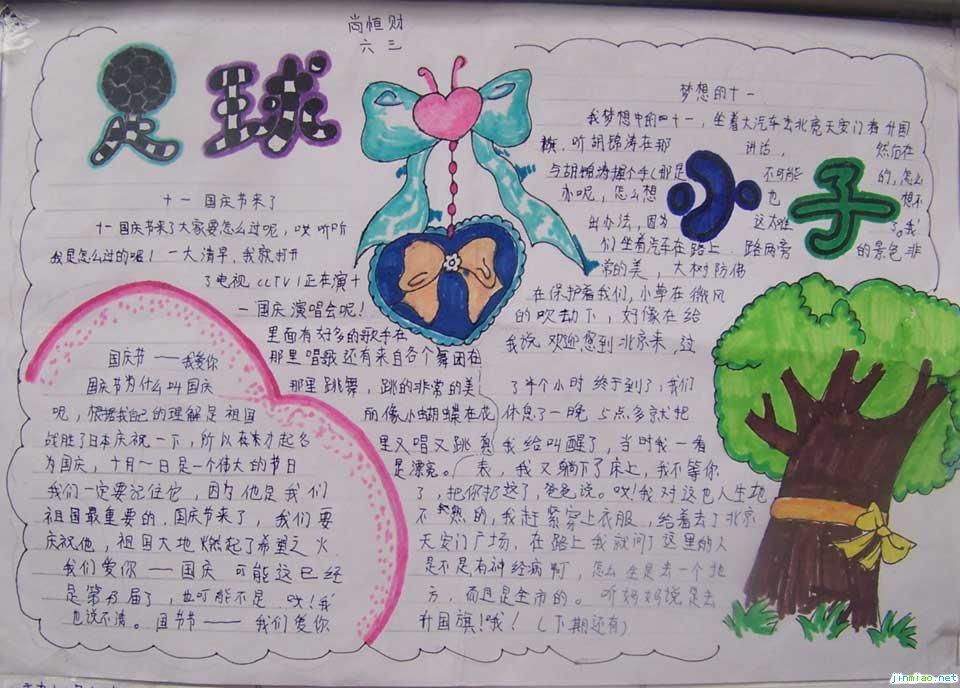 尚恒财
六三
足球
小子
十一国庆节来了
十一国庆节来了大家要怎么过呢，哎听听
我是怎么过的喔！一大清早，我就打开
了电视CCTV1正在演十
一国庆演唱会呢！
里面有好多的歌手在
那里唱歌还有来自各个舞团在
那里跳舞，跳的非常的美
丽像小蝴蝶在花
里又唱又跳真
是漂亮。
国庆节——我爱你
国庆节为什么叫国庆
呢，根据我自己的理解是祖国
战胜了日本庆祝一下，所以才起名
为国庆，十月一日是一个伟大的节日
我们一定要记住它，因为他是我们
祖国最重要的，国庆节来了，我们要
庆祝他，祖国大地燃起了希望之火
我们爱你——国庆 可能这已经
是第 届了，也可能不是 哎！我
也说不清。国节节——我们爱你
梦想的十一
我梦想中的四十一，坐着大汽车去北京天安门看升国
旗，听胡锦涛在那 讲话， 然后在
与胡锦涛握个手（那是 不可能 的，怎么
办呢，怎么想 也 想不
出办法，因为 这太难 了。我
们坐着汽车在路上．路两旁 的景色非
常的美，大树防佛
在保护着我们，小草在微风
的吹动下，好像在给
我说欢迎您到北京来，这
了半个小时终于到了，我们
休息了一晚 5点多就把
我给叫醒了，当时我一看
表，我又躺下了床上，我不等你
了，把你扔这了，爸爸说。哎！我对这也人生地
不熟的，我赶紧穿上衣服，给着去了北京
天安门广场，在路上我就问了这里的人
是不是有神经病啊，怎么全是去一个地
方，而且是全市的。听妈妈说是去
升国旗！哦！（下期还有）
jinmiao.net